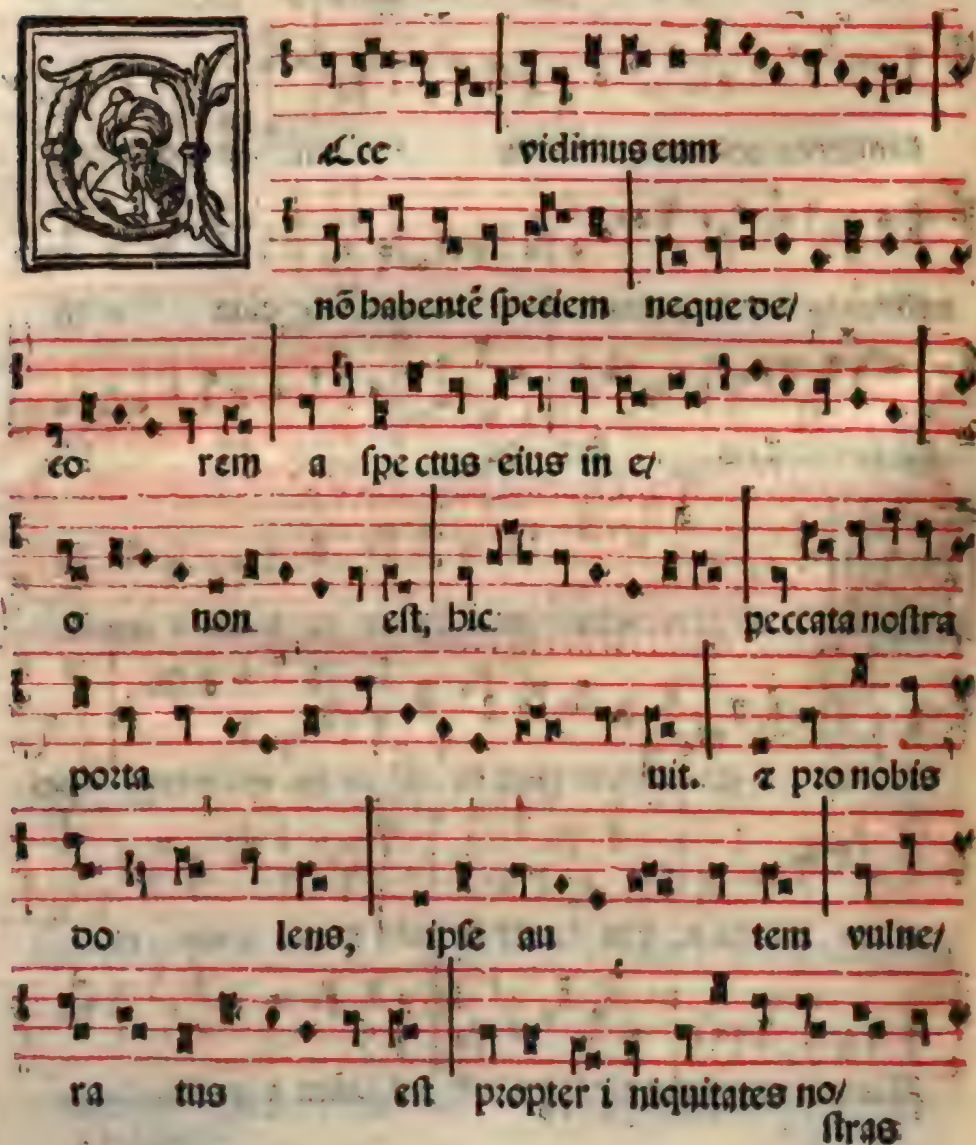 Ecce vidimus eum
nō habentē ſpeciem neque de/
co rem a ſpe ctus eius in e/
o non eſt, hic peccata noſtra
porta uit. ⁊ pro nobis
do lens, ipſe au tem vulne/
ra tus eſt propter i niquitates no/
ſtras